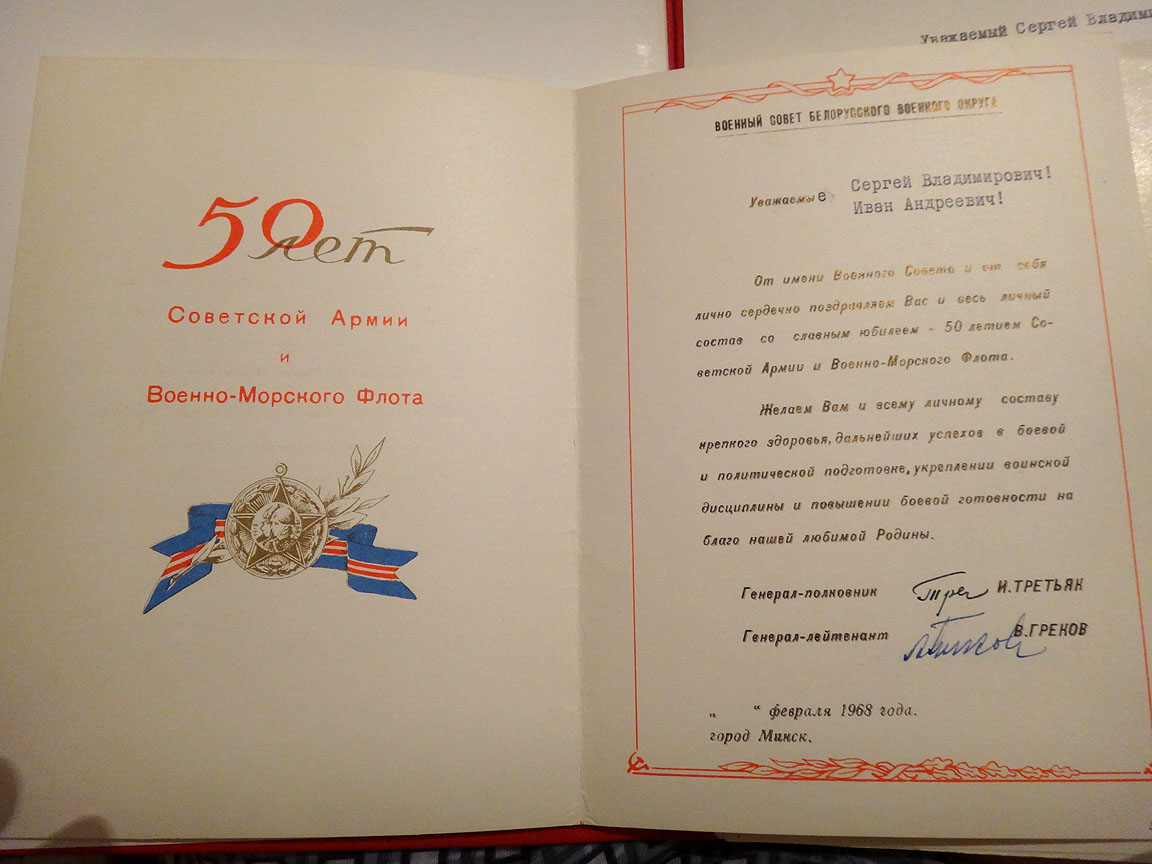 Уважаемый Сергей Владими
50 лет
Советской Армии
и
Военно-Морского Флота
ВОЕННЫЙ СОВЕТ БЕЛОРУССКОГО ВОЕННОГО ОКРУГА
Уважаемые Сергей Владимирович!
Иван Андреевич!
От имени Военного Совета и от себя
лично сердечно поздравляем Вас и весь личный
состав со славным юбилеем - 50 летием Со-
ветской Армии и Военно-Морского Флота.
Желаем Вам и всему личному составу
крепкого здоровья, дальнейших успехов в боевой
и политической подготовке, укреплении воинской
дисциплины и повышении боевой готовности на
благо нашей любимой Родины.
Генерал-полковник И. ТРЕТЬЯК
Генерал-лейтенант В. ГРЕКОВ
„ “ февраля 1968 года.
город Минск.